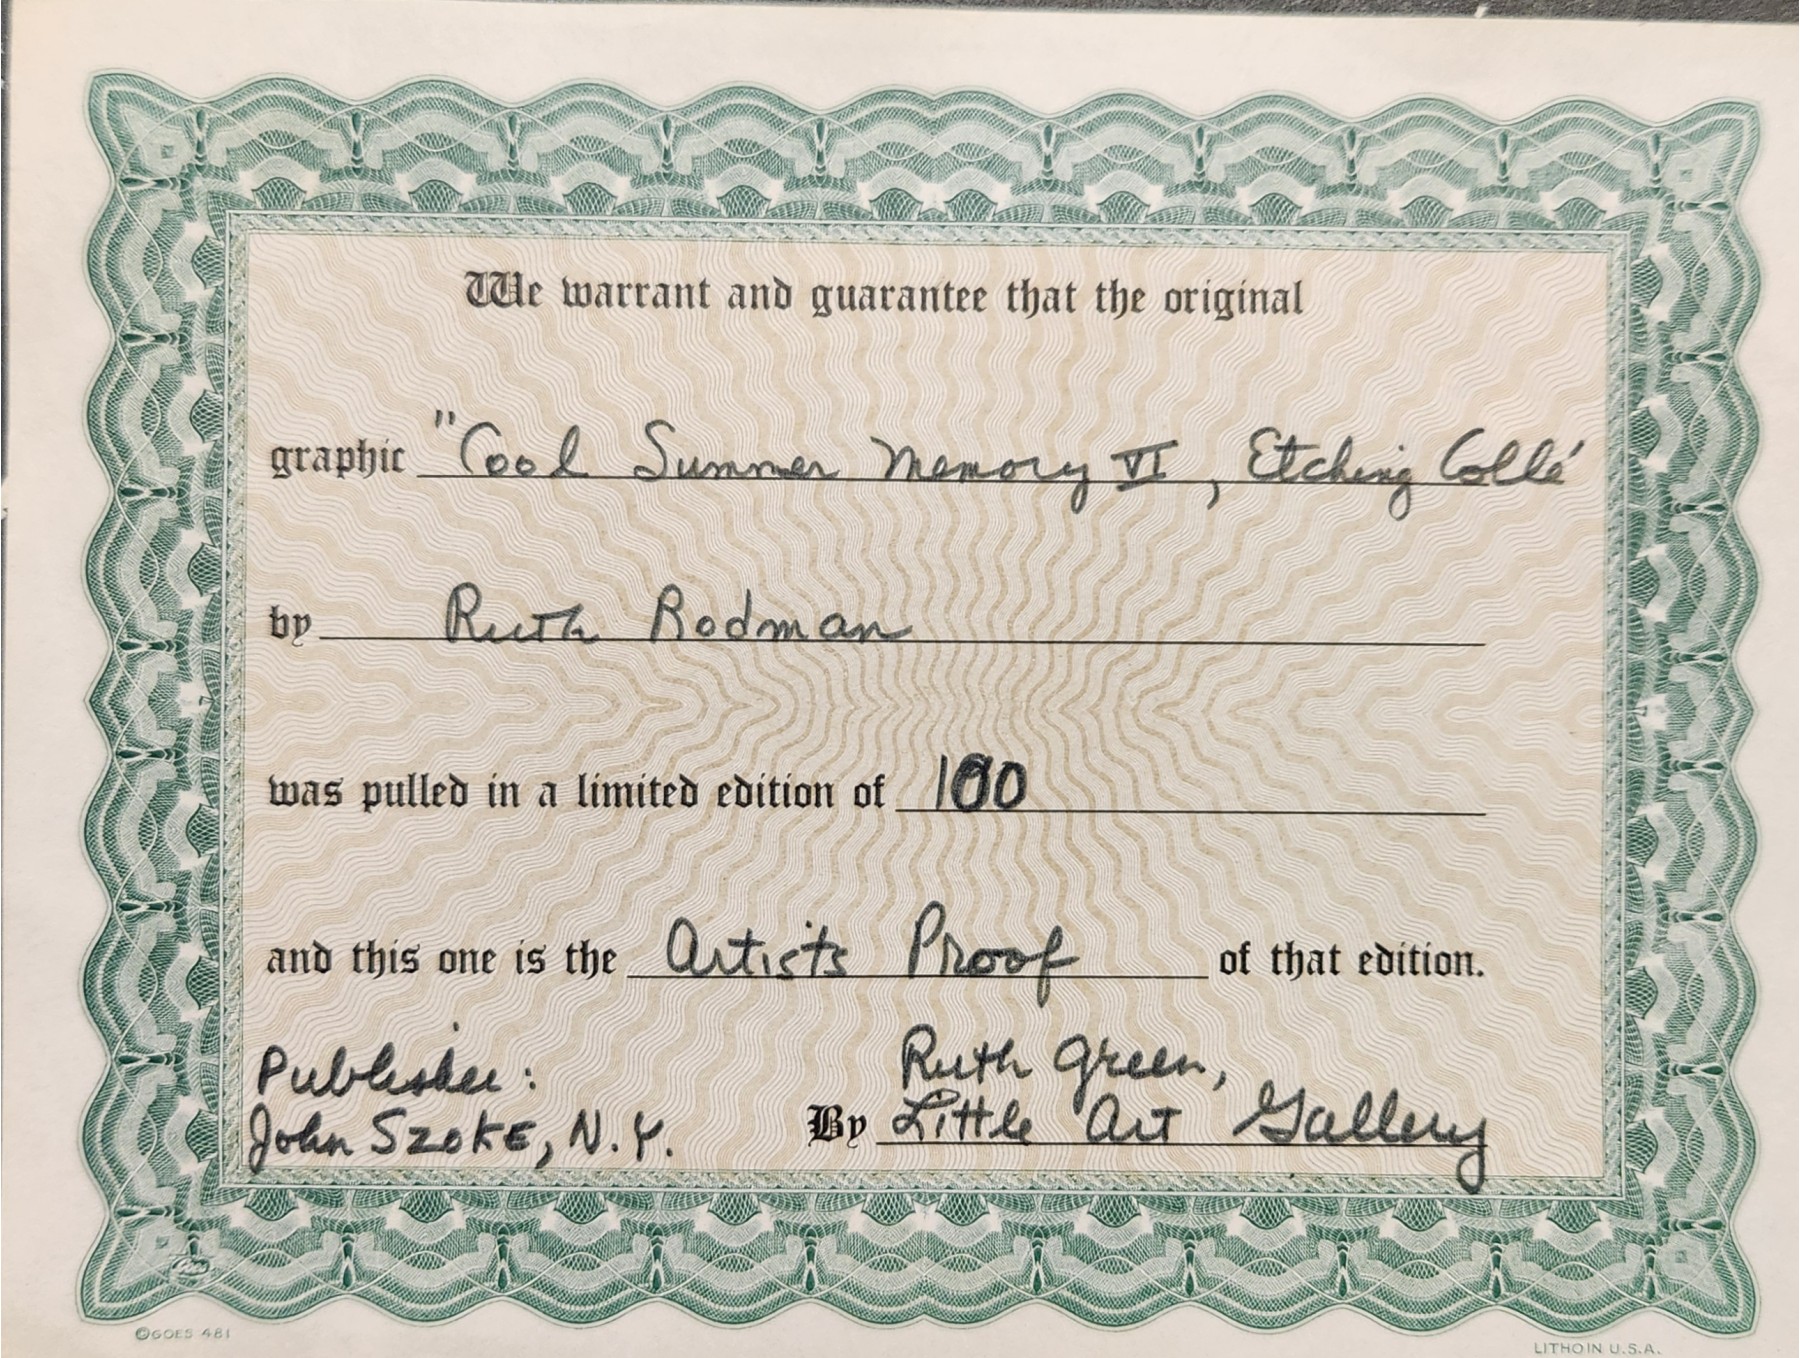 We warrant and guarantee that the original
graphic "Cool Summer Memory VI, Etching Collé
by Ruth Rodman
was pulled in a limited edition of 100
and this one is the Artists Proof of that edition.
Publisher:
John Szoke, N.Y.
Ruth Green,
By Little Art Gallery
©GOES 481
LITHO IN U.S.A.